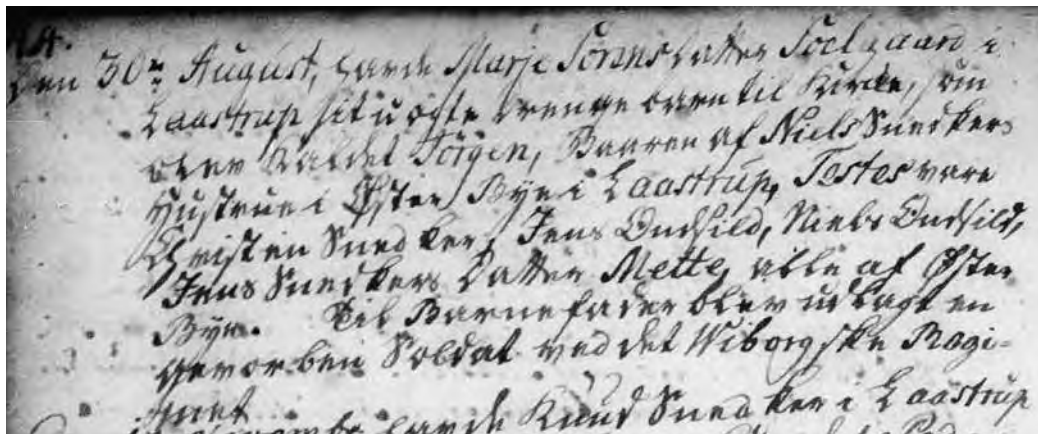 Den 30te August, havde Marje Sørensdatter Soelgaard i
Laastrup sit uægte drenge barn til Kircke, som
blev kaldet Jörgen, Baaren af Niels Snedkers
Hustrue i Øster Bye i Laastrup, Testes vare
Christen Snedker, Jens Ondsild, Niels Ondsild,
Jens Snedkers Datter Mette, alle af Øster
Bye. Til Barnefader blev udlagt en
gevorben Soldat ved det Wiborgske Regi-
ment
havde Knud Snedker i Laastrup